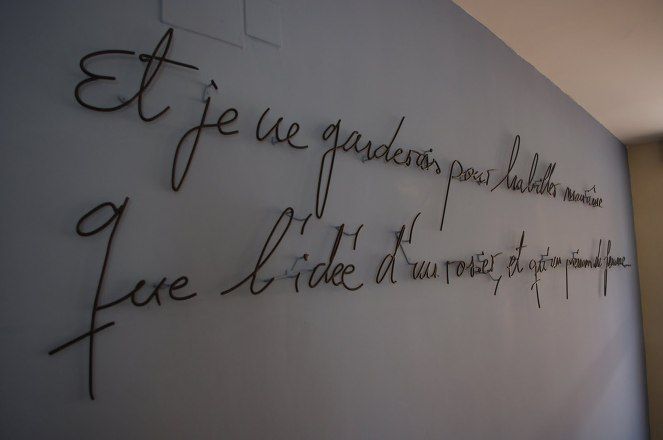 Et je ne garderais pour habiller moi-même
Que l'idée d'un rosier, et qu'un prénom de femme...